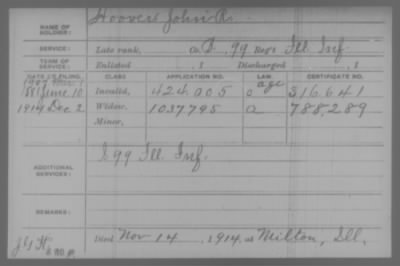 NAME OF SOLDIER: Hoover John R.
SERVICE: Late rank, Co. I, 99 Reg't Ill. Inf.
TERM OF SERVICE: Enlisted , 1 Discharged , 1
DATE OF FILING. CLASS. APPLICATION NO. LAW. CERTIFICATE NO.
age
1881 June 10 Invalid, 424005 316,641
1914 Dec 2 Widow, 1037795 a 788,289
Minor,
ADDITIONAL SERVICES: I 99 Ill. Inf.
REMARKS:
Died Nov 14, 1914, at Milton, Ill.